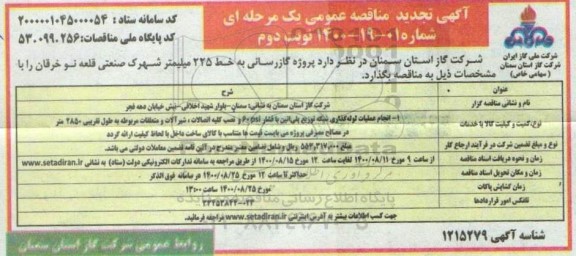 آگهی تجدید مناقصه عمومی یک مرحله ای
شماره ۰۱-۱۹-۱۴۰۰ نوبت دوم
کد سامانه ستاد : ۲۰۰۰۰۰۱۰۴۵۰۰۰۰۵۴
کد پایگاه ملی مناقصات: ۵۳.۰۹۹.۲۵۶
شرکت ملی گاز ایران
شرکت گاز استان سمنان
(سهامی خاص)
شرکت گاز استان سمنان در نظر دارد پروژه گازرسانی به خط ۲۲۵ میلیمتر شهرک صنعتی قلعه نو خرقان را با
مشخصات ذیل به مناقصه بگذارد.
عنوان شرح
نام و نشانی مناقصه گزار شرکت گاز استان سمنان به نشانی: سمنان-بلوار شهید اخلاقی-نبش خیابان دهه فجر
نوع، کمیت و کیفیت کالا یا خدمات ۱- انجام عملیات لوله گذاری شبکه توزیع پلی اتین با فشار ۶۰psi و نصب کلیه اتصالات ، شیرآلات و متعلقات مربوطه به طول تقریبی ۲۸۵۰ متر
در مصالح مصرفی پروژه می بایست قیمت ها متناسب با کالای ساخت داخل با لحاظ کیفیت ارائه گردد
نوع و مبلغ تضمین شرکت در فرآیند ارجاع کار مبلغ ۵۵۳,۳۱۷,۰۰۰ ریال و شامل تضامین معتبر مندرج در آئین نامه تضمین معاملات دولتی می باشد.
زمان و نحوه دریافت اسناد مناقصه از ساعت ۹ مورخ ۱۴۰۰/۰۸/۱۱ لغایت ساعت ۱۲ مورخ ۱۴۰۰/۰۸/۱۵ از طریق مراجعه به سامانه تدارکات الکترونیکی دولت (ستاد) به نشانی www.setadiran.ir
زمان و مکان تحویل اسناد مناقصه حداکثر تا ساعت ۱۲ مورخ ۱۴۰۰/۰۸/۲۵ در سامانه فوق الذکر
زمان گشایش پاکات مورخ ۱۴۰۰/۰۸/۲۵ ساعت ۱۳:۰۰
تلفکس امور قراردادها
جهت کسب اطلاعات بیشتر به آدرس اینترنتی www.setadiran.ir مراجعه فرمائید.
شناسه آگهی ۱۲۱۵۲۷۹
روابط عمومی شرکت گاز استان سمنان